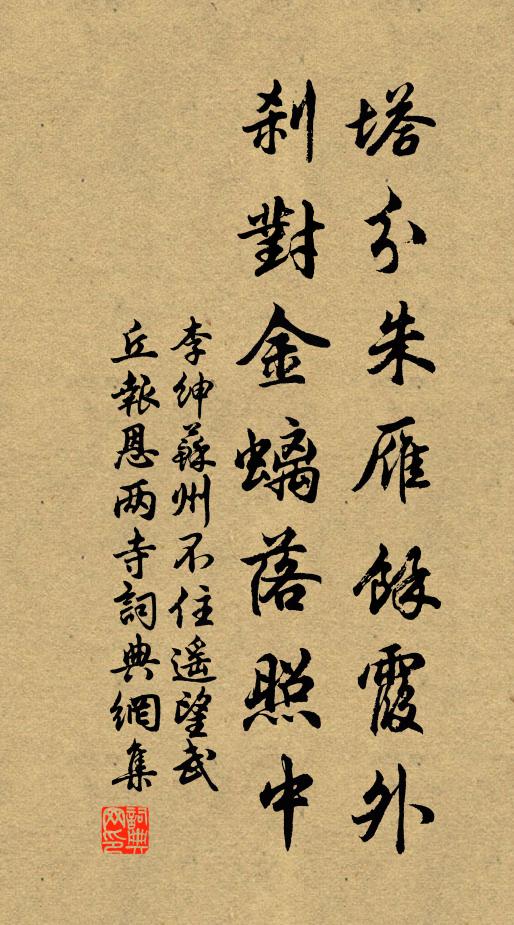 塔分朱雁餘霞外
刹對金螭落照中
李紳蘇州不住遥望武
丘報恩两寺詞典網集
詞典网印